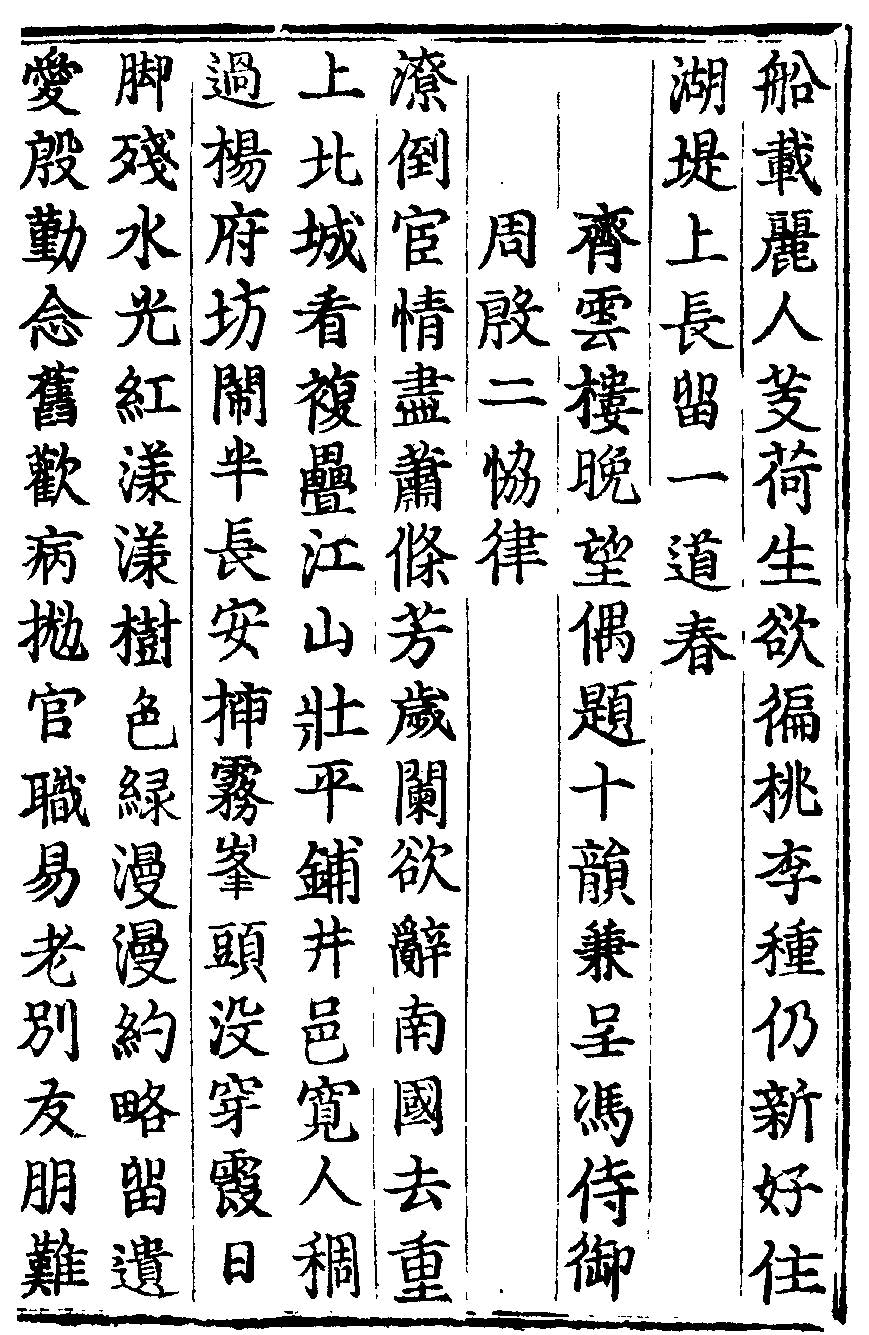 船載麗人芰荷生欲徧桃李種仍新好住
湖堤上長留一道春
齊雲樓晚望偶題十韻兼呈馮侍御
周殷二協律
潦倒宦情盡蕭條芳歲闌欲辭南國去重
上北城看複疊江山壯平鋪井邑寬人稠
過楊府坊閙半長安揷霧峯頭没穿霞日
脚殘水光紅漾漾樹色緑漫漫約略留遺
愛殷勤念舊歡病抛官職易老別友朋難